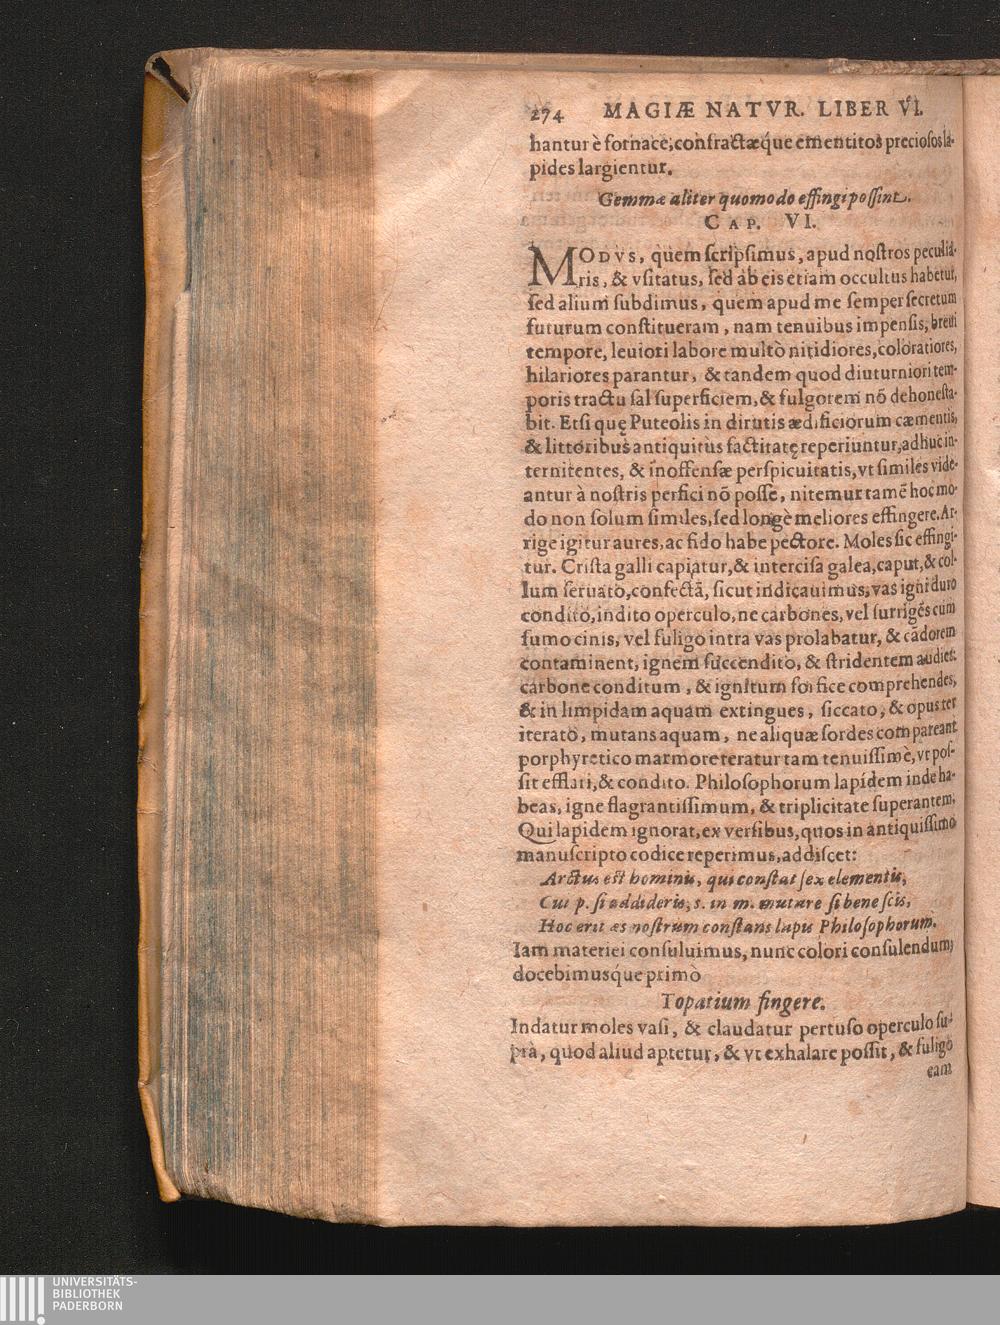 274 MAGIÆ NATVR. LIBER VI.
hantur è fornace; confractæq́ue ementitos preciosos la-
pides largientur.
Gemmæ aliter quomodo effingi possint.
CAP. VI.
MODVS, quem scripsimus, apud nostros peculia-
ris, & vsitatus, sed ab eis etiam occultus habetur,
sed alium subdimus, quem apud me semper secretum
futurum constitueram, nam tenuibus impensis, breui
tempore, leuiori labore multò nitidiores, coloratiores,
hilariores parantur, & tandem quod diuturniori tem-
poris tractu sal superficiem, & fulgorem nō dehonesta-
bit. Etsi quę Puteolis in dirutis ædificiorum cæmentis,
& littoribus antiquitùs factitatę reperiuntur, adhuc in-
ternitentes, & inoffensæ perspicuitatis, vt similes vide-
antur à nostris perfici nō posse, nitemur tamē hoc mo-
do non solum similes, sed longè meliores effingere. Ar-
rige igitur aures, ac fido habe pectore. Moles sic effingi-
tur. Crista galli capiatur, & intercisa galea, caput, & col-
lum seruato, confectā, sicut indicauimus, vas igni duro
condito, indito operculo, ne carbones, vel surrigēs cum
fumo cinis, vel fuligo intra vas prolabatur, & cādorem
contaminent, ignem succendito, & stridentem audies:
carbone conditum, & ignitum forfice comprehendes,
& in limpidam aquam extingues, siccato, & opus ter
iterato, mutans aquam, ne aliquæ sordes compareant
porphyretico marmore teratur tam tenuissimè, vt pos-
sit efflari, & condito. Philosophorum lapidem inde ha-
beas, igne flagrantissimum, & triplicitate superantem.
Qui lapidem ignorat, ex versibus, quos in antiquissimo
manuscripto codice reperimus, addiscet:
Arctus est hominis, qui constat sex elementis,
Cui p. si addideris, s. in m. mutare si bene scis,
Hoc erit æs nostrum constans lapis Philosophorum.
Iam materiei consuluimus, nunc colori consulendum;
docebimusq́ue primò
Topatium fingere.
Indatur moles vasi, & claudatur pertuso operculo su-
prà, quod aliud aptetur, & vt exhalare possit, & fuligo
eam
UNIVERSITÄTS-
BIBLIOTHEK
PADERBORN